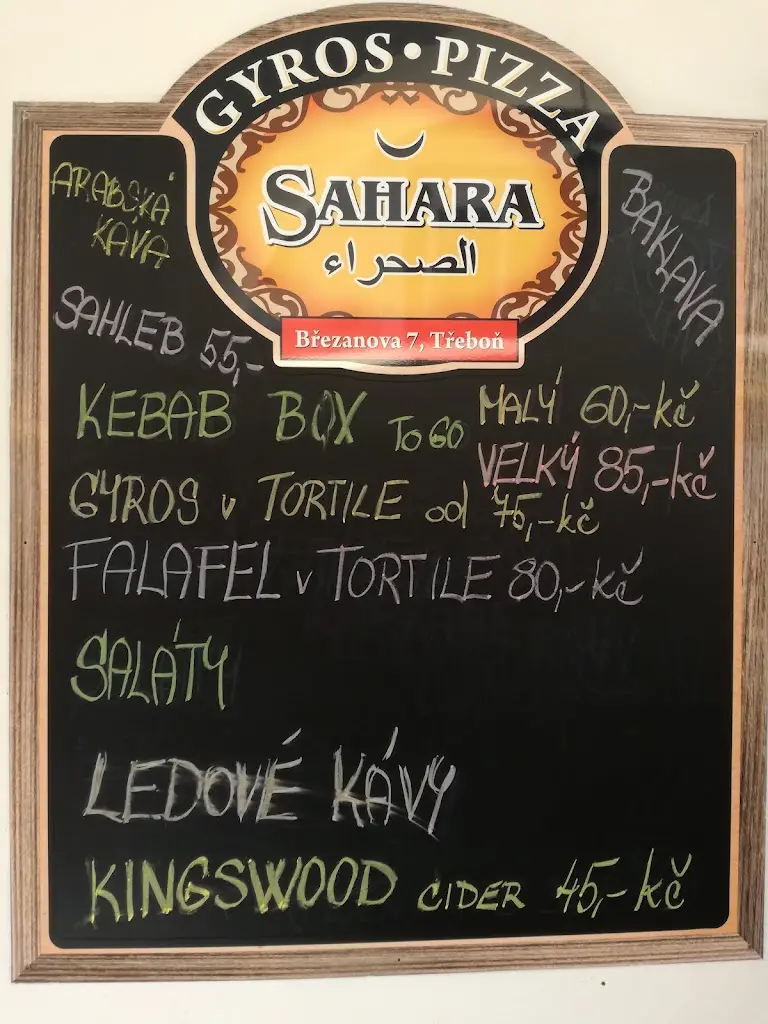 GYROS • PIZZA
SAHARA
الصحراء
Březanova 7, Třeboň
ARABSKÁ
KAVA
SAHLEB 55,-
BAKLAVA
KEBAB BOX TO GO MALÝ 60,-kč
VELKÝ 85,-kč
GYROS v TORTILE od 75,-kč
FALAFEL v TORTILE 80,-kč
SALÁTY
LEDOVÉ KÁVY
KINGSWOOD CIDER 45,-kč